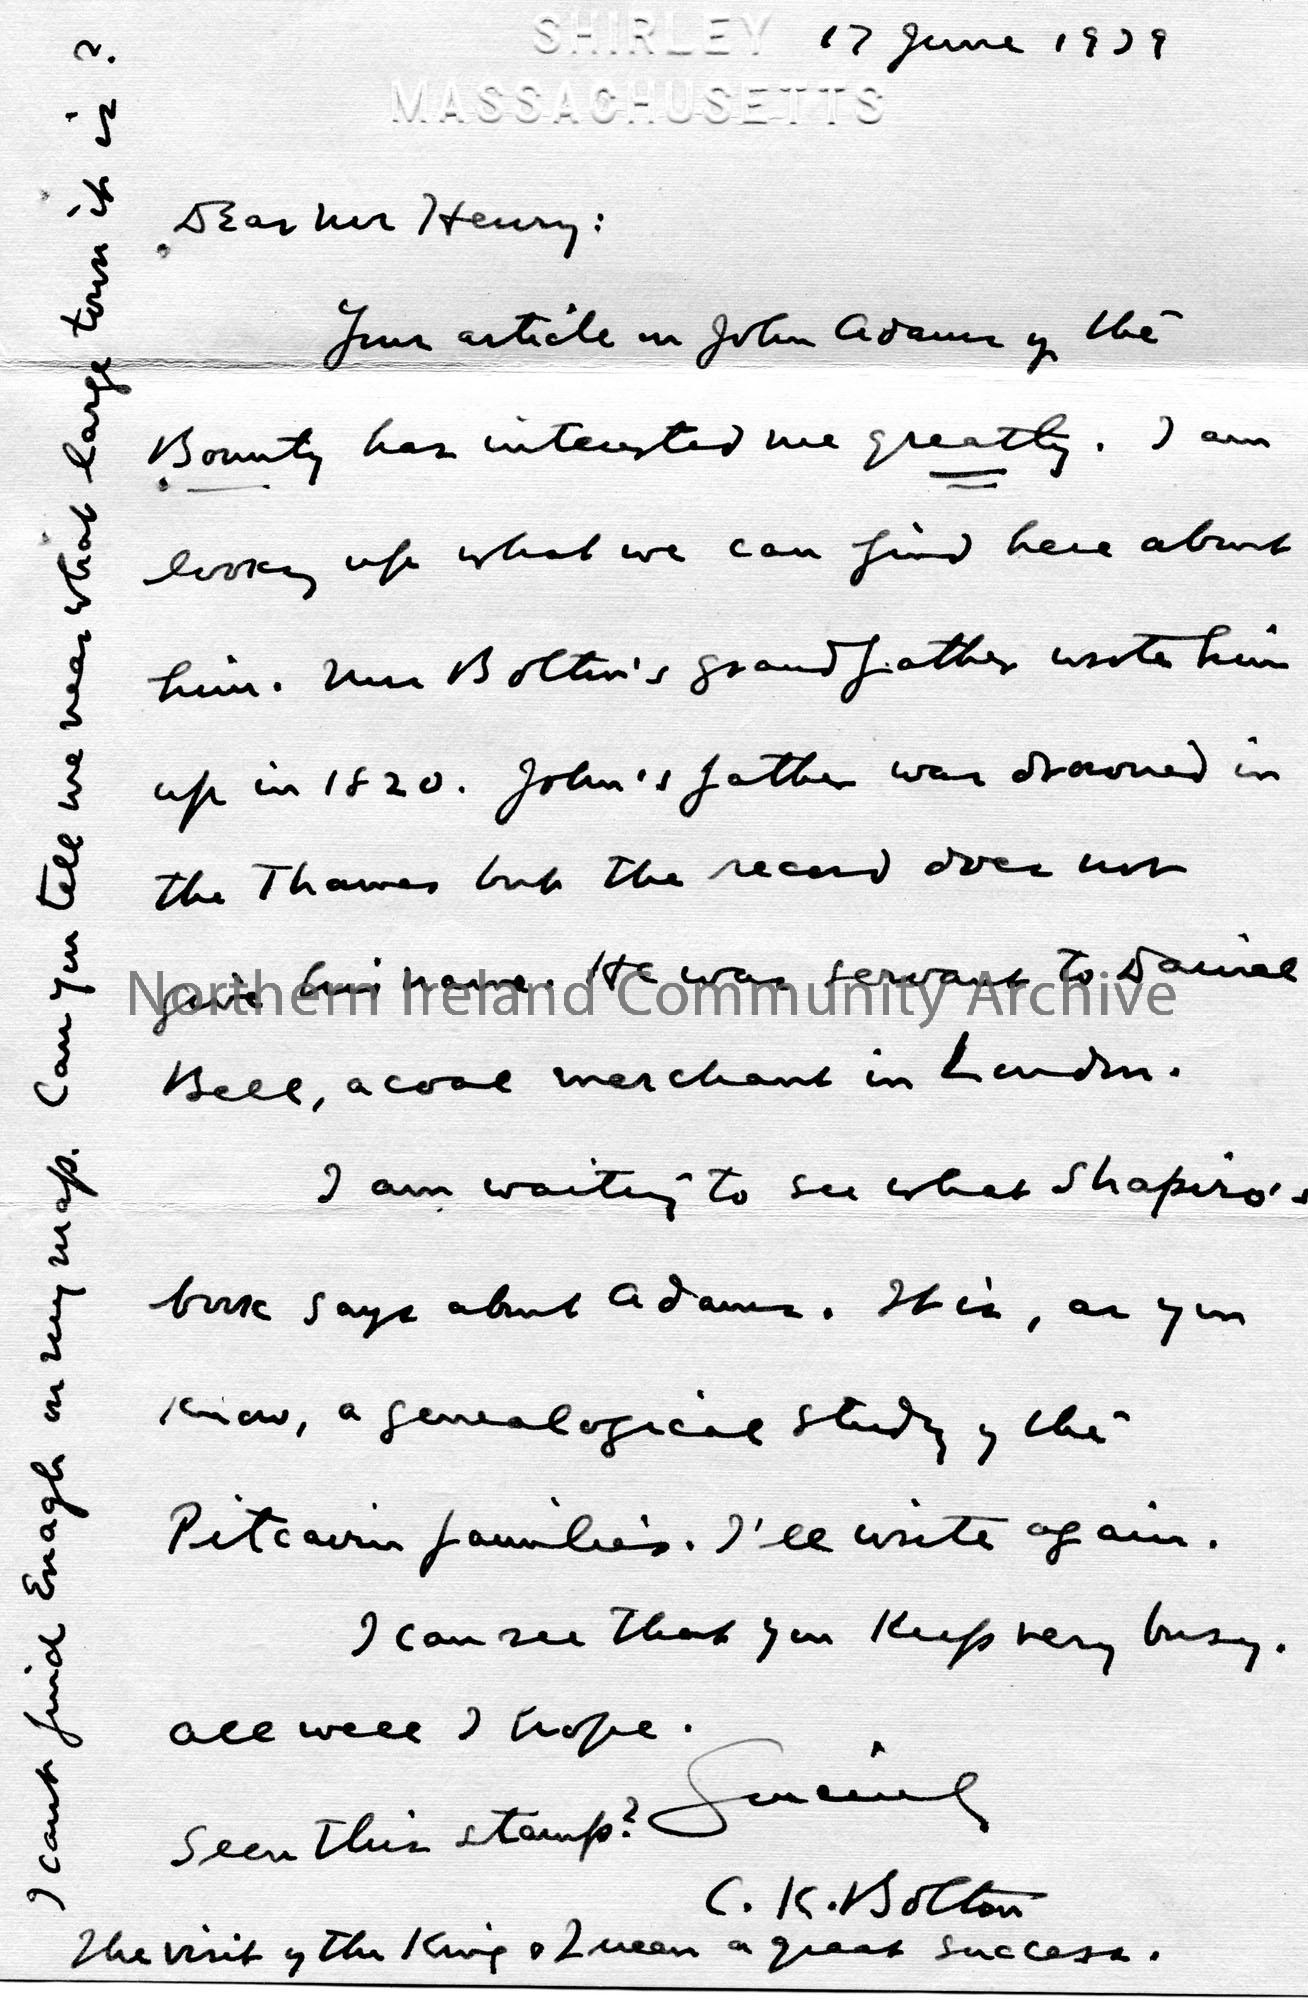 SHIRLEY
MASSACHUSETTS
17 June 1939
Dear Mr Henry:
Your article on John Adams of the
Bounty has interested me greatly. I am
looking up what we can find here about
him. Mrs Bolton's grandfather wrote him
up in 1820. John's father was drowned in
the Thames but the record does not
give his name. He was servant to Daniel
Bell, a coal merchant in London.
I am waiting to see what Shapiro's
book says about Adams. It is, as you
know, a genealogical study of the
Pitcairn families. I'll write again.
I can see that you keep very busy.
All well I hope.
Sincerely
Seen this stamp?
C. K. Bolton
The visit of the King & Queen a great success.
I cant find Enagh on my map. Can you tell me near what large town it is?
Northern Ireland Community Archive